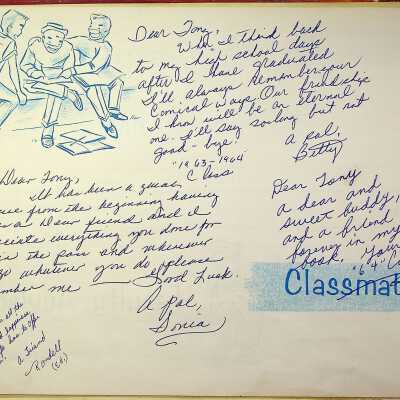 Dear Tony,
When I think back
to my high school days
after I have graduated
I'll always Remember your
Comical Ways. Our friendship
I know will be an eternal
one. I'll say so long but not
Good-bye!
A pal,
Betty
"1963-1964"
Class
Dear Tony,
It has been a great
from the beginning having
a dear friend and I
everything you done for
in the pass and wherever
go whatever you do please
me Good Luck.
A pal,
Sonia
Dear Tony
a dear and
sweet buddy,
and a friend
forever in my
book. Your
"64"
Classmat
all the
happiness
has to offer
a friend
Randell